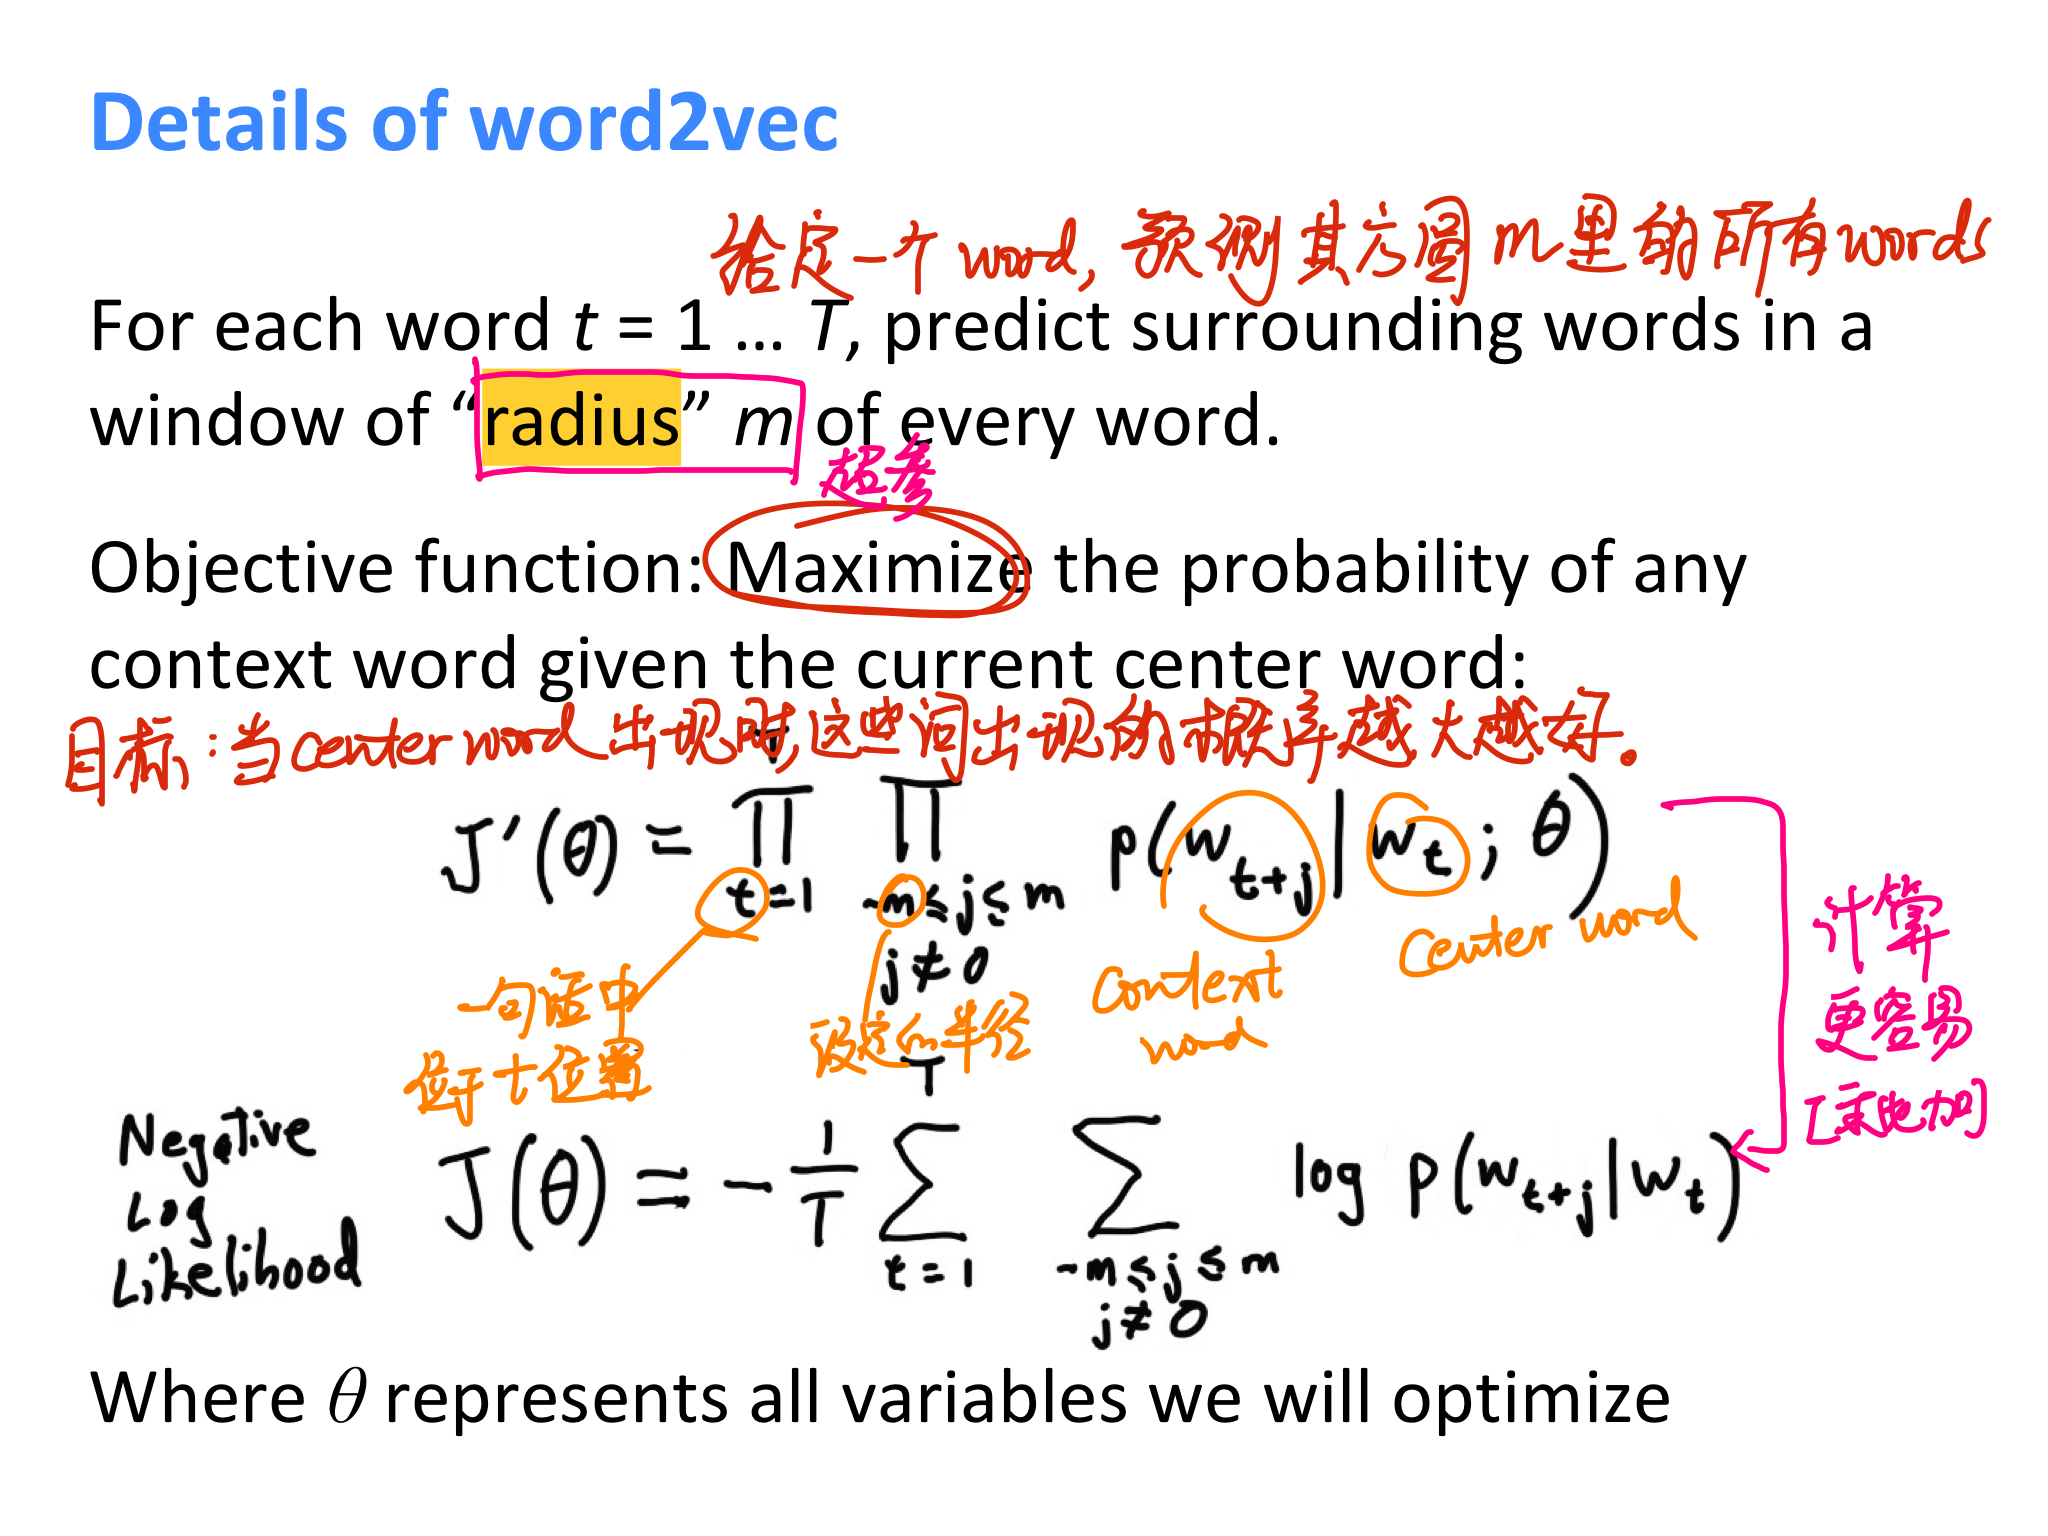 Details of word2vec
给定一个word, 预测其方圆m里的所有words
For each word t = 1 … T, predict surrounding words in a
window of “radius” m of every word.
超参
Objective function: Maximize the probability of any
context word given the current center word:
目标:当center word出现时,这些词出现的概率越大越好。
J′(θ) = ∏ ∏ p(w_{t+j} | w_t ; θ)
t=1 -m≤j≤m
j≠0
context
word
center word
一句话中
位于t位置
设定的半径
计算
更容易
[乘比加]
Negative
Log
Likelihood
T
J(θ) = - 1/T ∑ ∑ log p(w_{t+j} | w_t)
t=1 -m≤j≤m
j≠0
Where θ represents all variables we will optimize